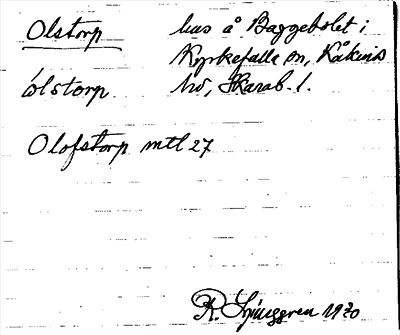 Olstorp hus å Baggebolet i
Kyrkefalla sn, Kåkinds
ólstorp hd, Skarab. l.
Olofstorp mtl 27
R. Ljunggren 1920